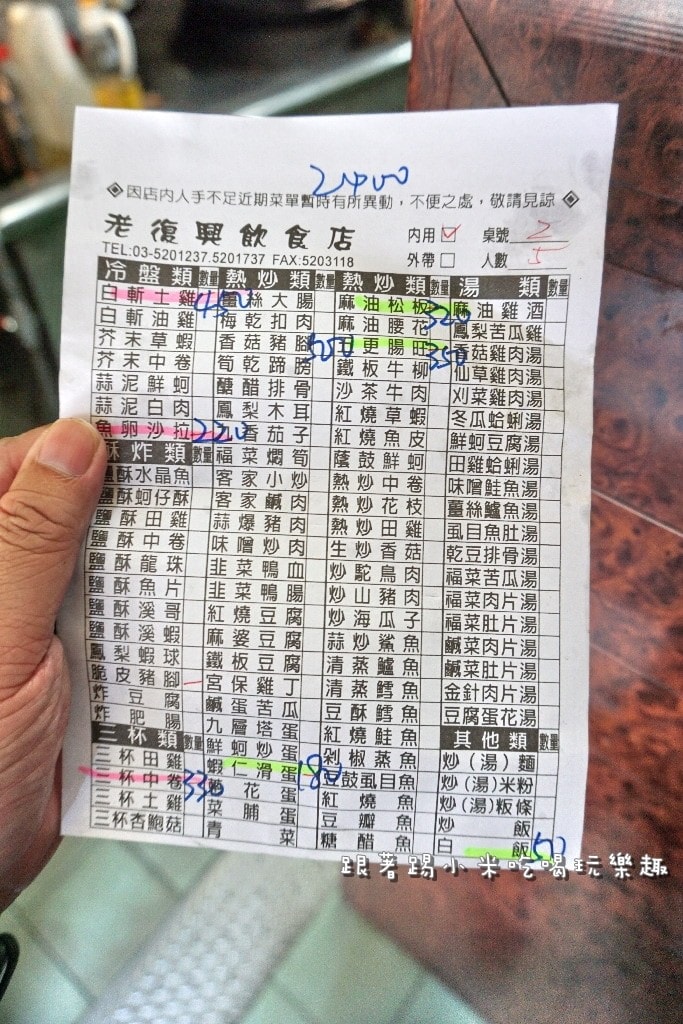 2400
◈因店內人手不足近期菜單暫時有所異動，不便之處，敬請見諒◈
老復興飲食店
TEL:03-5201237.5201737 FAX:5203118
內用☑ 桌號 2
外帶□ 人數 5
冷盤類 數量
白斬土雞 450
白斬油雞
芥末草蝦
芥末中卷
蒜泥鮮蚵
蒜泥白肉
魚卵沙拉 220
酥炸類 數量
鹽酥水晶魚
鹽酥蚵仔酥
鹽酥田雞
鹽酥中卷
鹽酥龍珠
鹽酥魚片
鹽酥溪哥
鹽酥溪蝦
鳳梨蝦球
脆皮豬腳
炸豆腐
炸肥腸
三杯類 數量
三杯田雞
三杯中卷 330
三杯土雞
三杯杏鮑菇
熱炒類 數量
薑絲大腸
梅乾扣肉
香菇豬腳 500
筍乾蹄膀
醣醋排骨
鳳梨木耳
香茄子
福菜燜筍
客家小炒
客家鹹肉
蒜爆豬肉
味噌炒肉
韭菜鴨血
韭菜鴨腸
紅燒豆腐
麻婆豆腐
鐵板豆腐
宮保雞丁
鹹蛋苦瓜
九層塔蛋
鮮蚵炒蛋
蝦仁滑蛋 180
花蛋
菜脯蛋
青菜
熱炒類 數量
麻油松板 320
麻油腰花
五更腸旺 350
鐵板牛柳
沙茶牛肉
紅燒草蝦
紅燒魚皮
蔭鼓鮮蚵
熱炒中卷
熱炒花枝
熱炒田雞
生炒香菇
炒鴕鳥肉
炒山豬肉
炒海瓜子
蒜炒鯊魚
清蒸鱸魚
清蒸鱈魚
豆酥鱈魚
紅燒鯰魚
剁椒蒸魚
豆鼓虱目魚
紅燒魚
豆瓣魚
糖醋魚
湯類 數量
麻油雞酒
鳳梨苦瓜雞
香菇雞肉湯
仙草雞肉湯
刈菜雞肉湯
冬瓜蛤蜊湯
鮮蚵豆腐湯
田雞蛤蜊湯
味噌鮭魚湯
薑絲鱸魚湯
虱目魚肚湯
乾豆排骨湯
福菜苦瓜湯
福菜肉片湯
福菜肚片湯
鹹菜肉片湯
鹹菜肚片湯
金針肉片湯
豆腐蛋花湯
其他類 數量
炒(湯)麵
炒(湯)米粉
炒(湯)粄條
炒飯
白飯 50
跟著踢小米吃喝玩樂趣